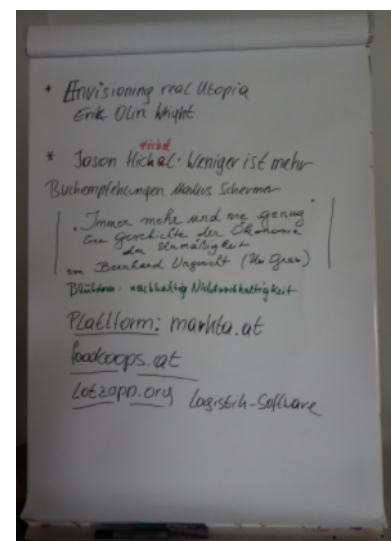 * Envisioning real Utopia
Erik Olin Wright
Hickel
* Jason Hickal: Weniger ist mehr
Buchempfehlungen Markus Schermer
"Immer mehr und nie genug"
Eine Geschichte der Ökonomie
der Unmäßigkeit
von Bernhard Ungericht (Uni Graz)
Blühdorn: nachhaltig Nichtnachhaltigkeit
Plattform: markta.at
foodcoops.at
Lotzapp.org Logistik-Software